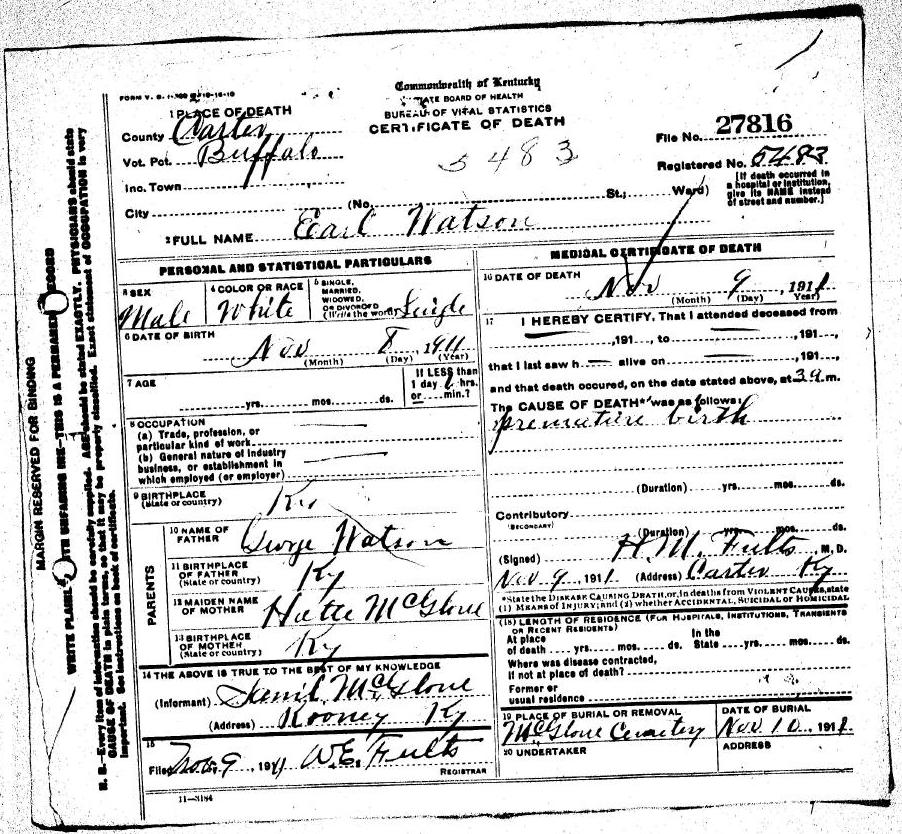 FORM V. S.
Commonwealth of Kentucky
STATE BOARD OF HEALTH
BUREAU OF VITAL STATISTICS
CERTIFICATE OF DEATH
1 PLACE OF DEATH
County Carter
Vot. Pct. Buffalo
Inc. Town
City (No. St.; Ward)
5483
File No. 27816
Registered No. 5483
[If death occurred in a hospital or institution, give its NAME instead of street and number.]
2 FULL NAME Earl Watson
PERSONAL AND STATISTICAL PARTICULARS
3 SEX Male
4 COLOR OR RACE White
5 SINGLE, MARRIED, WIDOWED, OR DIVORCED (Write the word) Single
6 DATE OF BIRTH
Nov 8, 1911
(Month) (Day) (Year)
7 AGE
yrs. mos. ds.
If LESS than 1 day hrs. or min.?
8 OCCUPATION
(a) Trade, profession, or particular kind of work
(b) General nature of industry business, or establishment in which employed (or employer)
9 BIRTHPLACE (State or country) Ky
PARENTS
10 NAME OF FATHER George Watson
11 BIRTHPLACE OF FATHER (State or country) Ky
12 MAIDEN NAME OF MOTHER McGlone
13 BIRTHPLACE OF MOTHER (State or country) Ky
14 THE ABOVE IS TRUE TO THE BEST OF MY KNOWLEDGE
(Informant) McGlone
(Address) Rooney Ky
15
Filed Nov 9, 1911 W.E. Fults
REGISTRAR
11—3184
MEDICAL CERTIFICATE OF DEATH
16 DATE OF DEATH
Nov 9, 1911
(Month) (Day) Year)
17 I HEREBY CERTIFY, That I attended deceased from
,191 , to ,191 ,
that I last saw h alive on ,191 ,
and that death occured, on the date stated above, at 3 a.m.
The CAUSE OF DEATH* was as follows:
premature birth
(Duration) yrs. mos. ds.
Contributory
(SECONDARY)
(Duration) yrs. mos. ds.
(Signed) H. M. Fults M. D.
Nov. 9, 1911 (Address) Carter Ky
*State the DISEASE CAUSING DEATH, or, in deaths from VIOLENT CAUSES, state
(1) MEANS OF INJURY; and (2) whether ACCIDENTAL, SUICIDAL or HOMICIDAL
(18) LENGTH OF RESIDENCE (FOR HOSPITALS, INSTITUTIONS, TRANSIENTS OR RECENT RESIDENTS)
At place of death yrs. mos. ds. In the State yrs. mos. ds.
Where was disease contracted, If not at place of death?
Former or usual residence
19 PLACE OF BURIAL OR REMOVAL
McGlone Cemetery
DATE OF BURIAL
Nov 10, 1911
20 UNDERTAKER
ADDRESS
MARGIN RESERVED FOR BINDING
WRITE PLAINLY WITH UNFADING INK—THIS IS A PERMANENT RECORD
N. B.—Every item of information should be carefully supplied. AGE should be stated EXACTLY. PHYSICIANS should state
CAUSE OF DEATH in plain terms, so that it may be properly classified. Exact statement of OCCUPATION is very
important. See instructions on back of certificate.